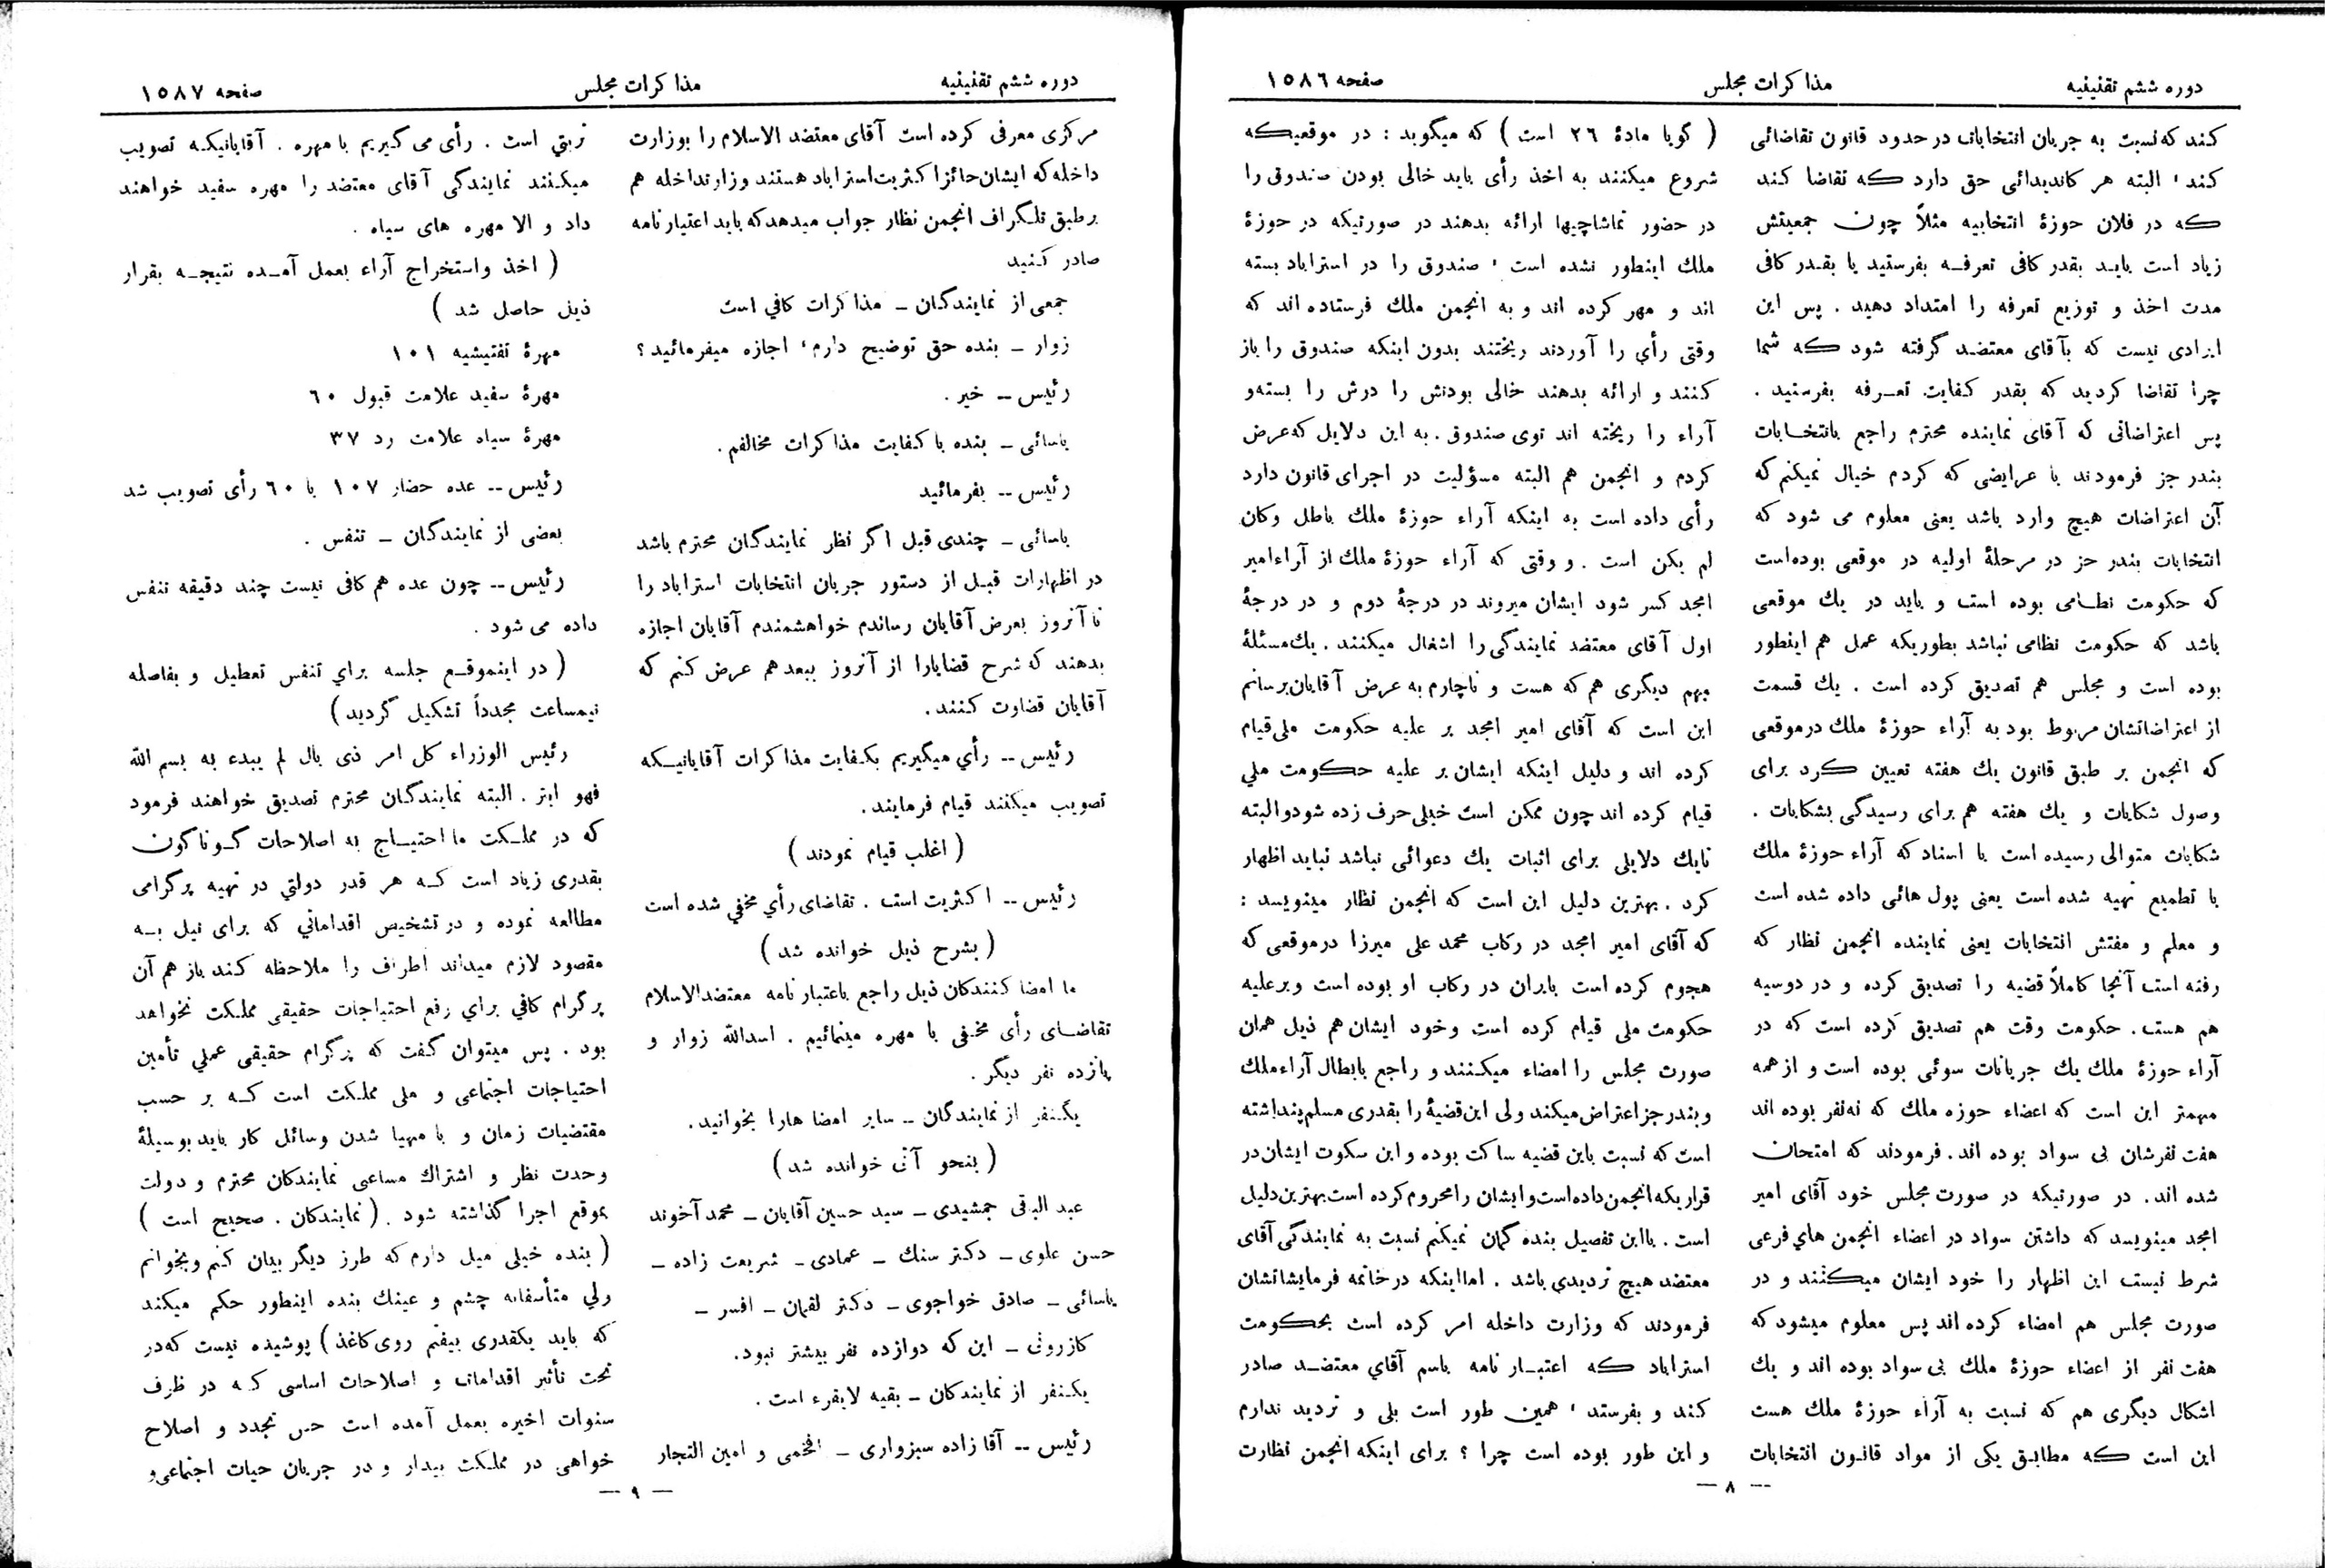 دوره ششم تقنینیه
مذاکرات مجلس
صفحه ۱۵۸۶
کنند که نسبت به جریان انتخابات در حدود قانون تقاضائی
کند، البته هر کاندیدائی حق دارد که تقاضا کند
که در فلان حوزهٔ انتخابیه مثلاً چون جمعیتش
زیاد است باید بقدر کافی تعرفه بفرستید یا بقدر کافی
مدت اخذ و توزیع تعرفه را امتداد دهید . پس این
ایرادی نیست که بآقای معتضد گرفته شود که شما
چرا تقاضا کردید که بقدر کفایت تعرفه بفرستید .
پس اعتراضاتی که آقای نماینده محترم راجع بانتخابات
بندر جز فرمودند با عرایضی که کردم خیال نمیکنم که
آن اعتراضات هیچ وارد باشد یعنی معلوم می شود که
انتخابات بندر جز در مرحلهٔ اولیه در موقعی بوده‌است
که حکومت نظامی بوده است و باید در یك موقعی
باشد که حکومت نظامی نباشد بطوریکه عمل هم اینطور
بوده است و مجلس هم تصدیق کرده است . یك قسمت
از اعتراضاتشان مربوط بود به آراء حوزهٔ ملك درموقعی
که انجمن بر طبق قانون یك هفته تعیین کرد برای
وصول شکایات و یك هفته هم برای رسیدگی بشکایات .
شکایات متوالی رسیده است با اسناد که آراء حوزهٔ ملك
با تطمیع تهیه شده است یعنی پول هائی داده شده است
و معلم و مفتش انتخابات یعنی نماینده انجمن نظار که
رفته است آنجا کاملاً قضیه را تصدیق کرده و در دوسیه
هم هست . حکومت وقت هم تصدیق کرده است که در
آراء حوزهٔ ملك یك جریانات سوئی بوده است و از همه
مهمتر این است که اعضاء حوزه ملك که نه‌نفر بوده اند
هفت نفرشان بی سواد بوده اند . فرمودند که امتحان
شده اند . در صورتیکه در صورت مجلس خود آقای امیر
امجد مینویسد که داشتن سواد در اعضاء انجمن هاي فرعی
شرط نیست این اظهار را خود ایشان میکنند و در
صورت مجلس هم امضاء کرده اند پس معلوم میشود که
هفت نفر از اعضاء حوزهٔ ملك بی سواد بوده اند و یك
اشکال دیگری هم که نسبت به آراء حوزهٔ ملك هست
این است که مطابق یکی از مواد قانون انتخابات
( گویا مادهٔ ۲۶ است ) که میگوید : در موقعیکه
شروع میکنند به اخذ رأی باید خالی بودن صندوق را
در حضور تماشاچیها ارائه بدهند در صورتیکه در حوزهٔ
ملك اینطور نشده است ، صندوق را در استراباد بسته
اند و مهر کرده اند و به انجمن ملك فرستاده اند که
وقتی رأي را آوردند ریختند بدون اینکه صندوق را باز
کنند و ارائه بدهند خالی بودنش را درش را بسته‌و
آراء را ریخته اند توی صندوق . به این دلایل که عرض
کردم و انجمن هم البته مسؤلیت در اجرای قانون دارد
رأی داده است به اینکه آراء حوزهٔ ملك باطل وکان
لم یکن است . و وقتی که آراء حوزهٔ ملك از آراءامیر
امجد کسر شود ایشان میروند در درجهٔ دوم و در درجهٔ
اول آقای معتضد نمایندگی را اشغال میکنند . یك مسئلهٔ
مهم دیگری هم که هست و ناچارم به عرض آقایان‌برسانم
این است که آقای امیر امجد بر علیه حکومت ملی قیام
کرده اند و دلیل اینکه ایشان بر علیه حکومت ملي
قیام کرده اند چون ممکن است خیلی حرف زده شودوالبته
تایك دلایلی برای اثبات یك دعوائی نباشد نباید اظهار
کرد . بهترین دلیل این است که انجمن نظار مینویسد :
که آقای امیر امجد در رکاب محمد علی میرزا درموقعی که
هجوم کرده است بایران در رکاب او بوده است و برعلیه
حکومت ملی قیام کرده است وخود ایشان هم ذیل همان
صورت مجلس را امضاء میکنند و راجع بابطال آراء ملك
و بندر جز اعتراض میکند ولی این‌قضیهٔ را بقدری مسلم پنداشته
است که نسبت باین قضیه ساکت بوده و این سکوت ایشان در
قراریکه انجمن داده است وایشان را محروم کرده است بهترین دلیل
است . بااین تفصیل بنده گمان نمیکنم نسبت به نمایندگی آقای
معتضد هیچ تردیدي باشد . امااینکه درخاتمه فرمایشاتشان
فرمودند که وزارت داخله امر کرده است بحکومت
استراباد که اعتبار نامه باسم آقاي معتضد صادر
کند و بفرستد ، همین طور است بلی و تردید ندارم
و این طور بوده است چرا ؟ برای اینکه انجمن نظارت
— ۸ —
دوره ششم تقنینیه
مذاکرات مجلس
صفحه ۱۵۸۷
مرکزی معرفی کرده است آقای معتضد الاسلام را بوزارت
داخله که ایشان حائز اکثریت استراباد هستند وزارتداخله هم
بر طبق تلگراف انجمن نظار جواب میدهد که باید اعتبار نامه
صادر کنید
جمعی از نمایندگان ــ مذاکرات کافي است
زوار ــ بنده حق توضیح دارم، اجازه میفرمائید ؟
رئیس ــ خیر .
یاسائی ــ بنده با کفایت مذاکرات مخالفم .
رئیس ــ بفرمائید
یاسائی ــ چندی قبل اگر نظر نمایندگان محترم باشد
در اظهارات قبل از دستور جریان انتخابات استراباد را
تا آنروز بعرض آقایان رساندم خواهشمندم آقایان اجازه
بدهند که شرح قضایارا از آنروز ببعد هم عرض کنم که
آقایان قضاوت کنند .
رئیس ــ رأي میگیریم بکفایت مذاکرات آقایانیکه
تصویب میکنند قیام فرمایند .
( اغلب قیام نمودند )
رئیس ــ اکثریت است . تقاضای رأي مخفي شده است
( بشرح ذیل خوانده شد )
ما امضا کنندگان ذیل راجع باعتبار نامه معتضدالاسلام
تقاضای رأی مخفی با مهره مینمائیم . اسدالله زوار و
پانزده نفر دیگر .
یکنفر از نمایندگان ــ سایر امضا هارا بخوانید .
( بنحو آتی خوانده شد )
عبد الباقی جمشیدی ــ سید حسین آقایان ــ محمد آخوند
حسن علوی ــ دکتر سنك ــ عمادی ــ شریعت زاده ــ
یاسائی ــ صادق خواجوی ــ دکتر لقمان ــ افسر ــ
کازرونی ــ این که دوازده نفر بیشتر نبود .
یکنفر از نمایندگان ــ بقیه لایقرء است .
رئیس ــ آقا زاده سبزواری ــ افخمی و امین التجار
تربتي است . رأی می گیریم با مهره . آقایانیکه تصویب
میکنند نمایندگی آقای معتضد را مهره سفید خواهند
داد و الا مهره های سیاه .
( اخذ واستخراج آراء بعمل آمده نتیجه بقرار
ذیل حاصل شد )
مهرهٔ تفتیشیه ۱۰۱
مهرهٔ سفید علامت قبول ۶۰
مهرهٔ سیاه علامت رد ۳۷
رئیس ــ عده حضار ۱۰۷ با ۶۰ رأی تصویب شد
بعضی از نمایندگان ــ تنفس .
رئیس ــ چون عده هم کافی نیست چند دقیقه تنفس
داده می شود .
( در اینموقع جلسه براي تنفس تعطیل و بفاصله
نیمساعت مجدداً تشکیل گردید )
رئیس الوزراء کل امر ذی بال لم یبدء به بسم الله
فهو ابتر . البته نمایندگان محترم تصدیق خواهند فرمود
که در مملکت ما احتیاج به اصلاحات گوناگون
بقدری زیاد است که هر قدر دولتي در تهیه پرگرامی
مطالعه نموده و در تشخیص اقداماتي که برای نیل به
مقصود لازم میداند اطراف را ملاحظه کند باز هم آن
پرگرام کافي براي رفع احتیاجات حقیقی مملکت نخواهد
بود . پس میتوان گفت که پرگرام حقیقی عملي تأمین
احتیاجات اجتماعی و ملی مملکت است که بر حسب
مقتضیات زمان و با مهیا شدن وسائل کار باید بوسیلهٔ
وحدت نظر و اشتراك مساعی نمایندگان محترم و دولت
بموقع اجرا گذاشته شود . ( نمایندگان . صحیح است )
( بنده خیلی میل دارم که طرز دیگر بیان کنم وبخوانم
ولي متأسفانه چشم و عینك بنده اینطور حکم میکند
که باید یکقدری بیفتم روی کاغذ ) پوشیده نیست که در
تحت تأثیر اقدامات و اصلاحات اساسی که در ظرف
سنوات اخیره بعمل آمده است حس تجدد و اصلاح
خواهی در مملکت بیدار و در جریان حیات اجتماعی و
— ۹ —